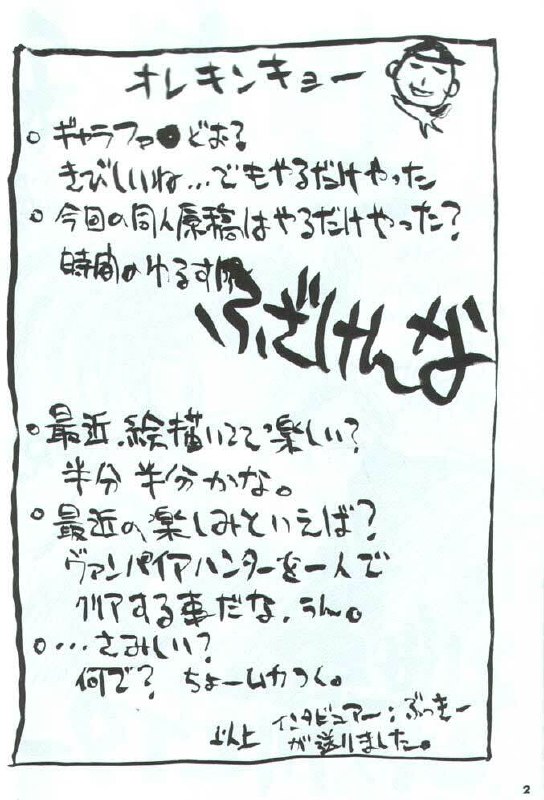 オレキンキョー
○ ギャラファ●どお?
きびしいね…でもやるだけやった
○ 今回の同人原稿はやるだけやった?
時間のゆるす限
ふざけんな
○ 最近、絵描いてて楽しい?
半分半分かな。
○ 最近の楽しみといえば?
ヴァンパイアハンターを一人で
クリアする事だな。うん。
○ …さみしい?
何で? ちょームカつく。
以上 インタビュアー:ぶっきー
が送りました。
2